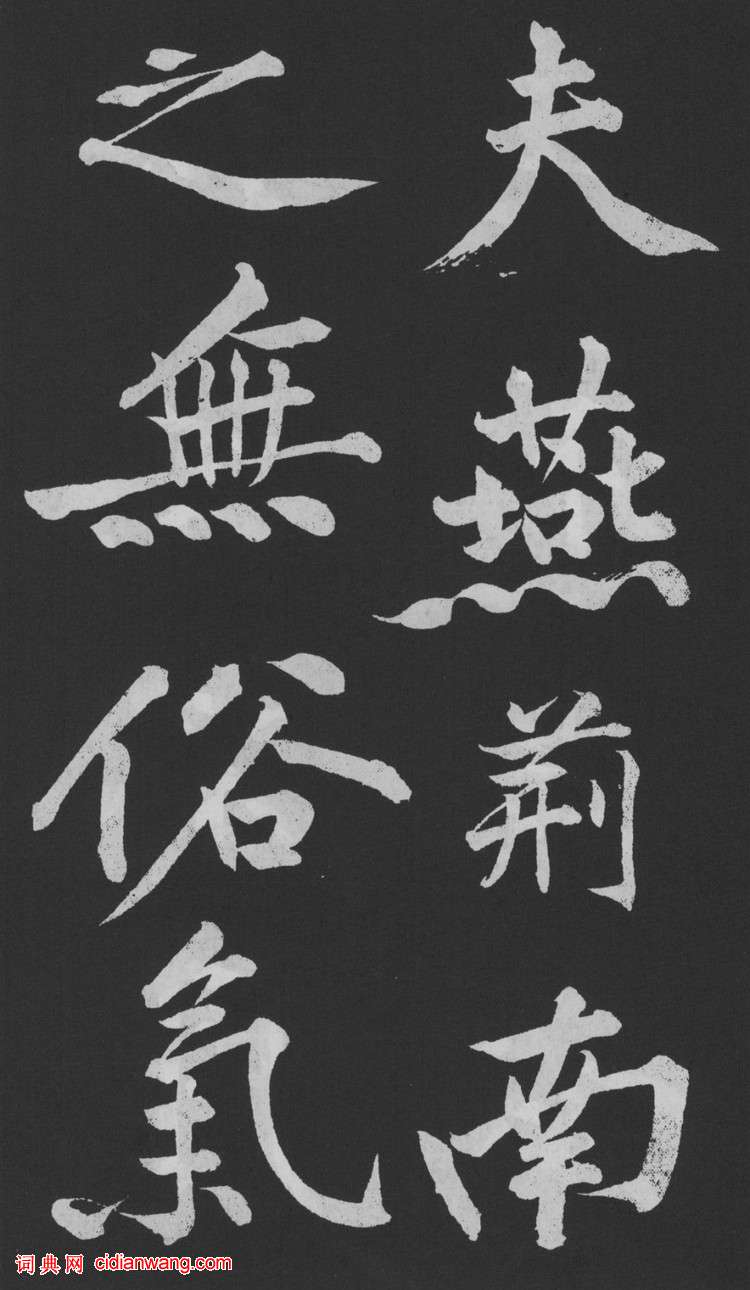 夫燕荆南
之無俗氣
词典网 cidianwang.com